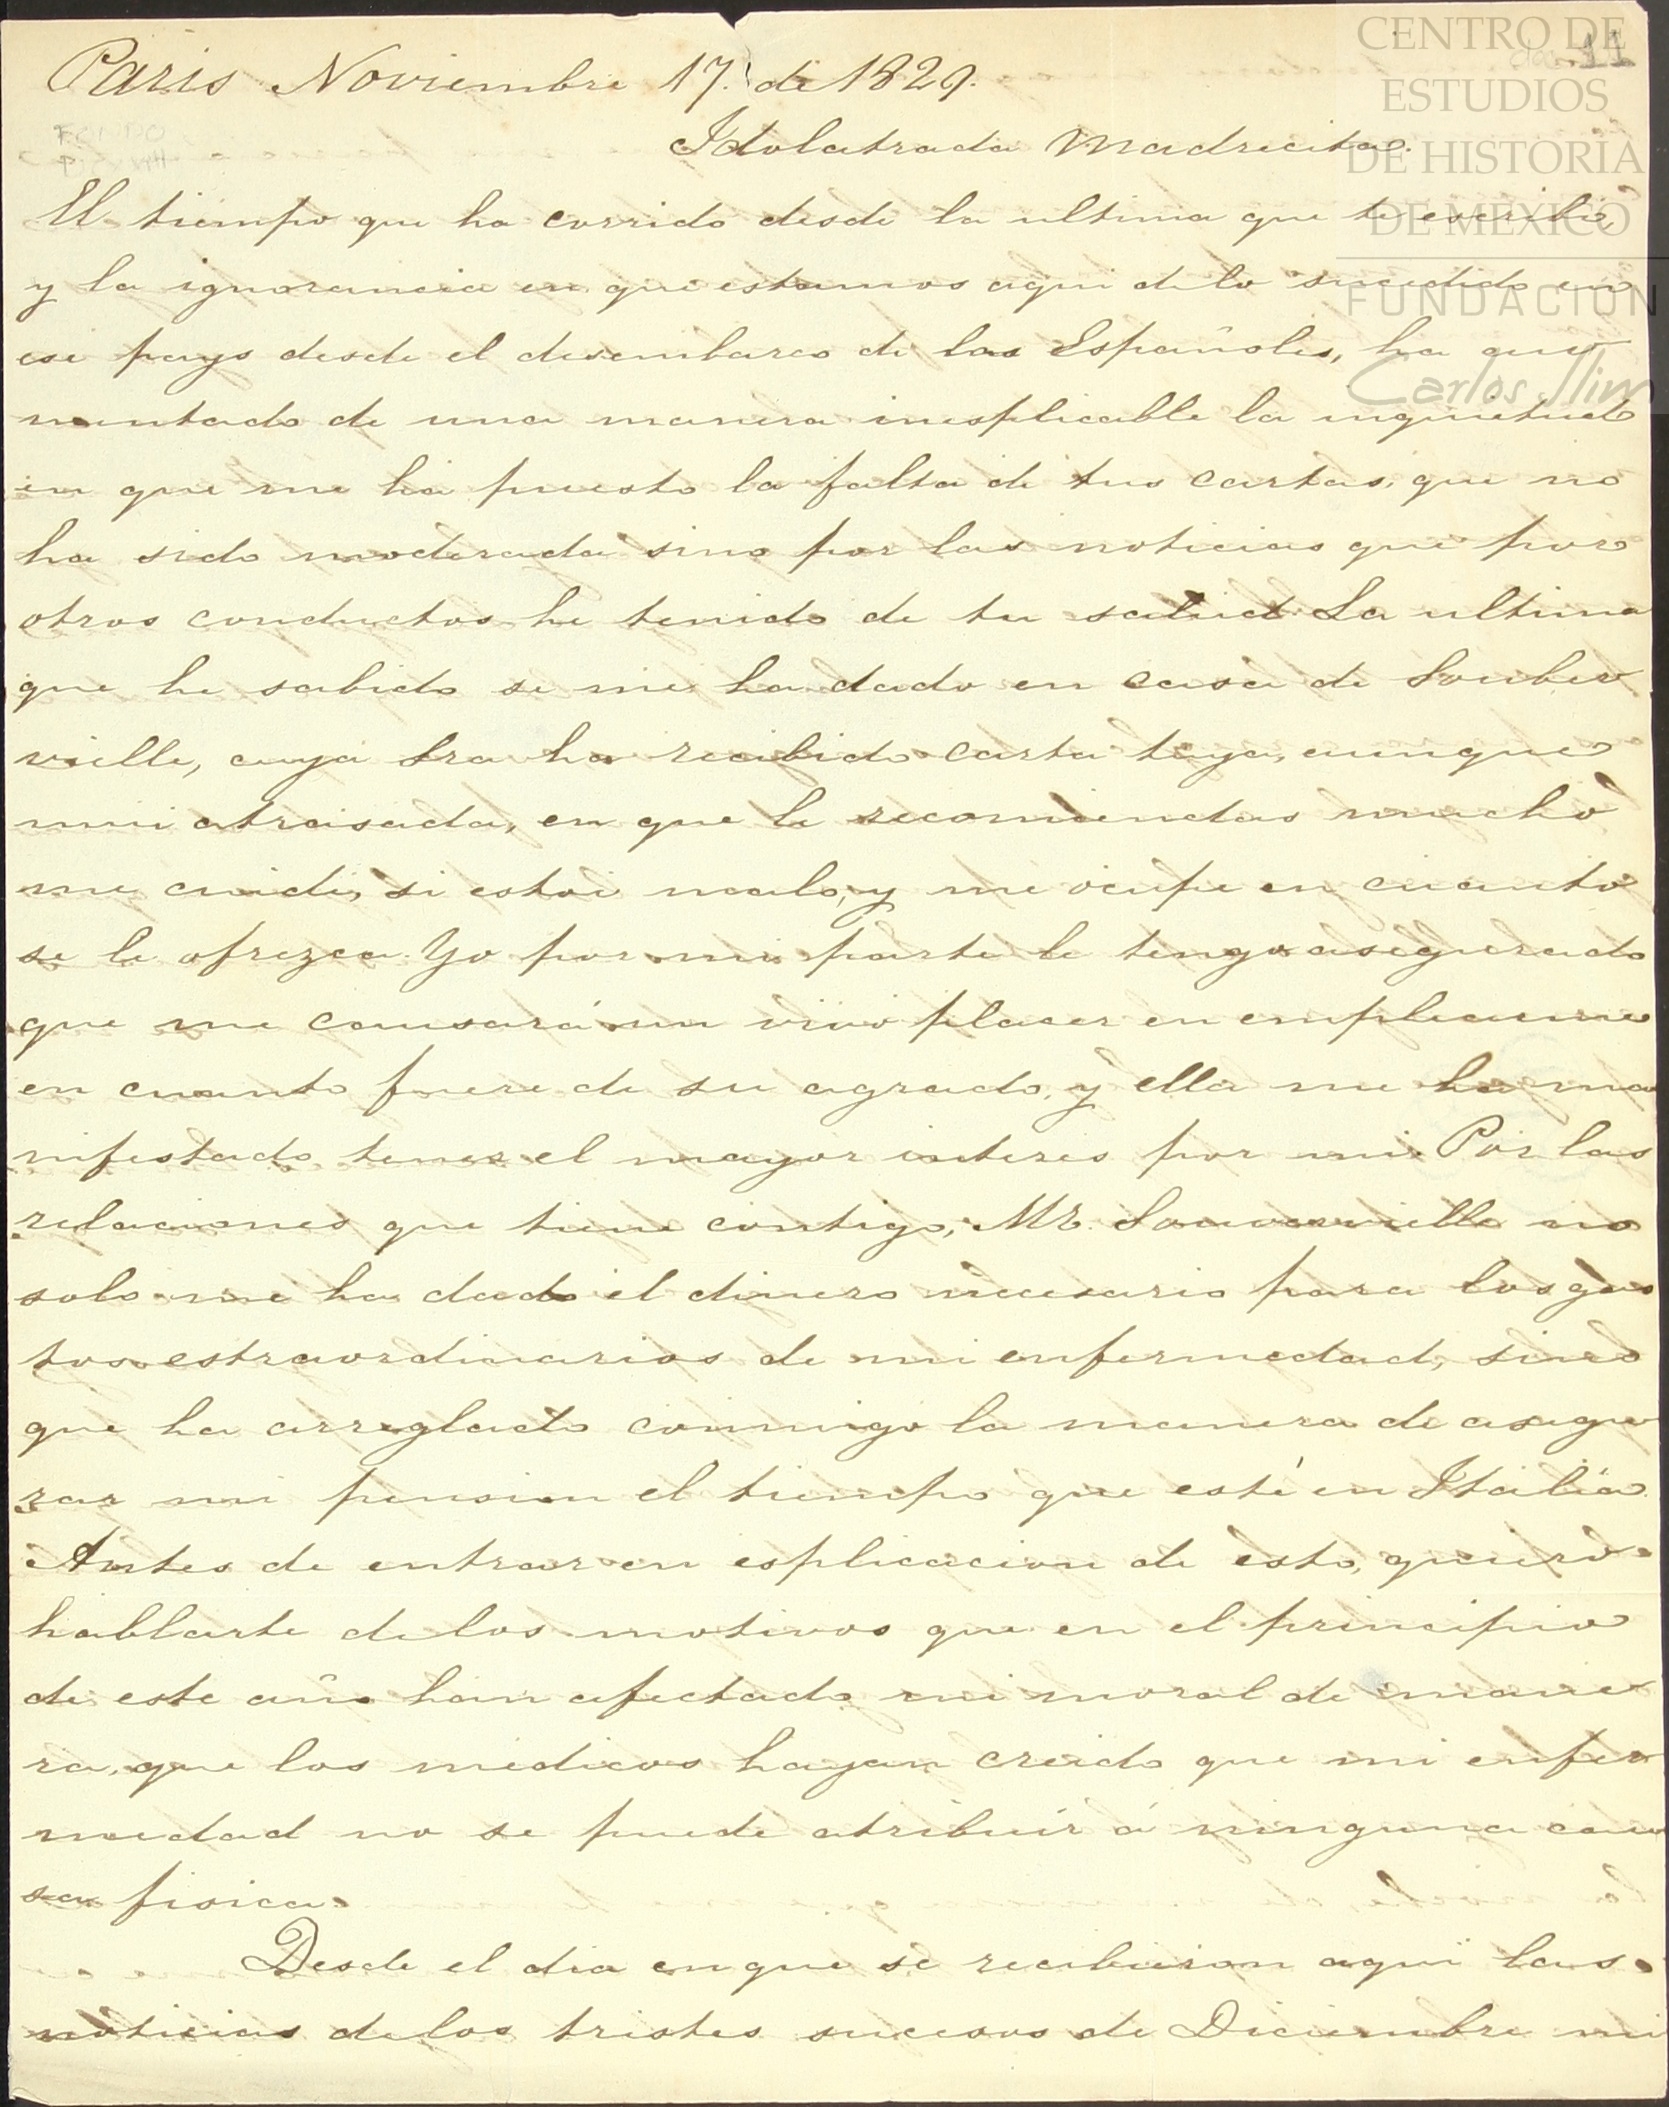 CENTRO DE
ESTUDIOS
DE HISTORIA
DE MÉXICO
FUNDACIÓN
Carlos Slim
11
FONDO
Paris Noviembre 17. de 1829.
Idolatrada Madrecita.
El tiempo que ha corrido desde la ultima que te escribi,
y la ignorancia en que estamos aqui de lo sucedido en
ese pays desde el desembarco de los Españoles, ha au
mentado de una manera inesplicable la inquietud
en que me ha puesto la falta de tus cartas, que no
ha sido moderada sino por las noticias que por
otros conductos he tenido de tu salud. La ultima
que he sabido se me ha dado en casa de Souber
vielle, cuya Sra ha recibido carta tuya, aunque
mui atrasada, en que le recomiendas mucho
me cuide, si estoi malo, y me ocupe en cuanto
se le ofrezca. Yo por mi parte le tengo asegurado
que me causará un vivo placer en emplearme
en cuanto fuere de su agrado, y ella me ha ma
nifestado tener el mayor interes por mi. Por las
relaciones que tiene contigo, Mr. Souvervielle no
solo me ha dado el dinero necesario para los gas
tos estraordinarios de mi enfermedad, sino
que ha arreglado conmigo la manera de asegu
rar mi pension el tiempo que esté en Italia.
Antes de entrar en esplicacion de esto, quiero
hablarte de los motivos que en el principio
de este año han afectado mi moral de mane
ra, que los medicos hayan creido que mi enfer
medad no se puede atribuir á ninguna cau
sa fisica.
Desde el dia en que se recibieron aqui las
noticias de los tristes sucesos de Diciembre mi